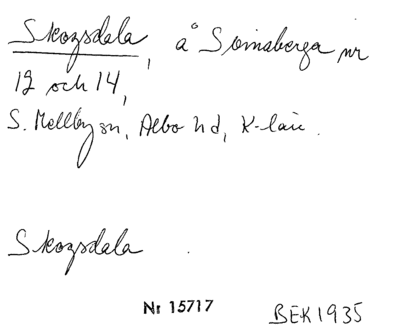 Skogsdala, å Svinaberga nr
12 och 14,
S. Mellby sn, Albo hd, K-län.
Skogsdala
Nr 15717 BEK 1935